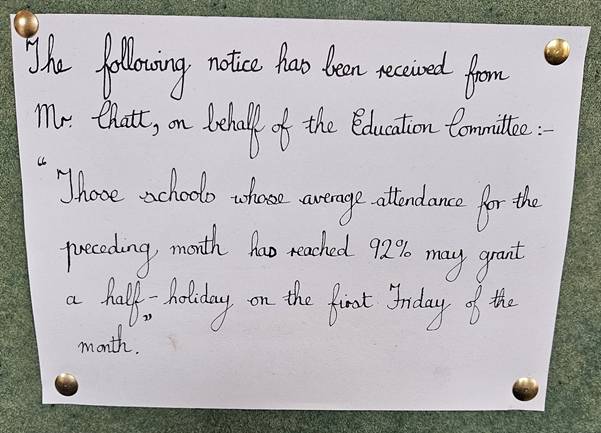 The following notice has been received from
Mr. Chatt, on behalf of the Education Committee :-
"Those schools whose average attendance for the
preceding month has reached 92% may grant
a half-holiday on the first Friday of the
month."